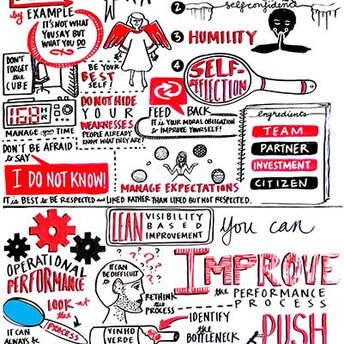 by EXAMPLE
IT'S NOT WHAT
YOU SAY BUT
WHAT YOU DO
DON'T
FORGET
THE
CUBE
BE YOUR
BEST
SELF!
2
selfconfidence
3 HUMILITY
4 SELF-
REFLECTION
MANAGE your TIME
DO NOT HIDE
YOUR
WEAKNESSES
PEOPLE ALREADY
KNOW WHAT THEY ARE!
FEED BACK
IT IS YOUR MORAL OBLIGATION
to IMPROVE YOURSELF!
Ingredients
TEAM
PARTNER
INVESTMENT
CITIZEN
DON'T BE AFRAID
to SAY
I DO NOT KNOW!
MANAGE EXPECTATIONS
IT IS BEST to BE RESPECTED and LIKED RATHER THAN LIKED BUT NOT RESPECTED.
LEAN VISIBILITY
BASED
IMPROVEMENT
You can
IMPROVE
the PERFORMANCE
PROCESS
OPERATIONAL
PERFORMANCE
LOOK at
the
PROCESS
IT CAN
ALWAYS be
IT CAN
BE DIFFICULT
to
RETHINK
the PROCESS
VINHO
VERDE
IDENTIFY
the
BOTTLENECK
PUSH